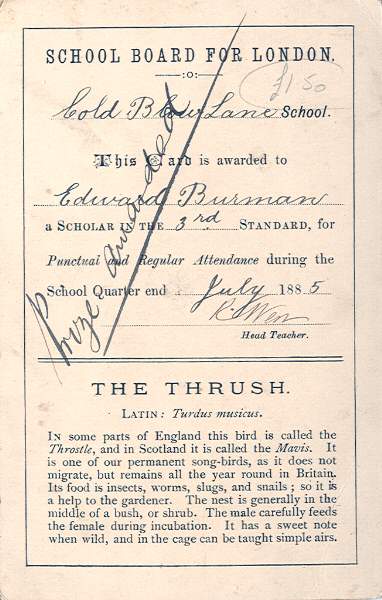 SCHOOL BOARD FOR LONDON.
:o:
£1.50
Cold Blow Lane School.
This Card is awarded to
Edward Burman
a SCHOLAR IN THE 3rd STANDARD, for
Punctual and Regular Attendance during the
School Quarter end July 1885
Head Teacher.
Prize awarded
THE THRUSH.
LATIN: Turdus musicus.
IN some parts of England this bird is called the
Throstle, and in Scotland it is called the Mavis. It
is one of our permanent song-birds, as it does not
migrate, but remains all the year round in Britain.
Its food is insects, worms, slugs, and snails; so it is
a help to the gardener. The nest is generally in the
middle of a bush, or shrub. The male carefully feeds
the female during incubation. It has a sweet note
when wild, and in the cage can be taught simple airs.